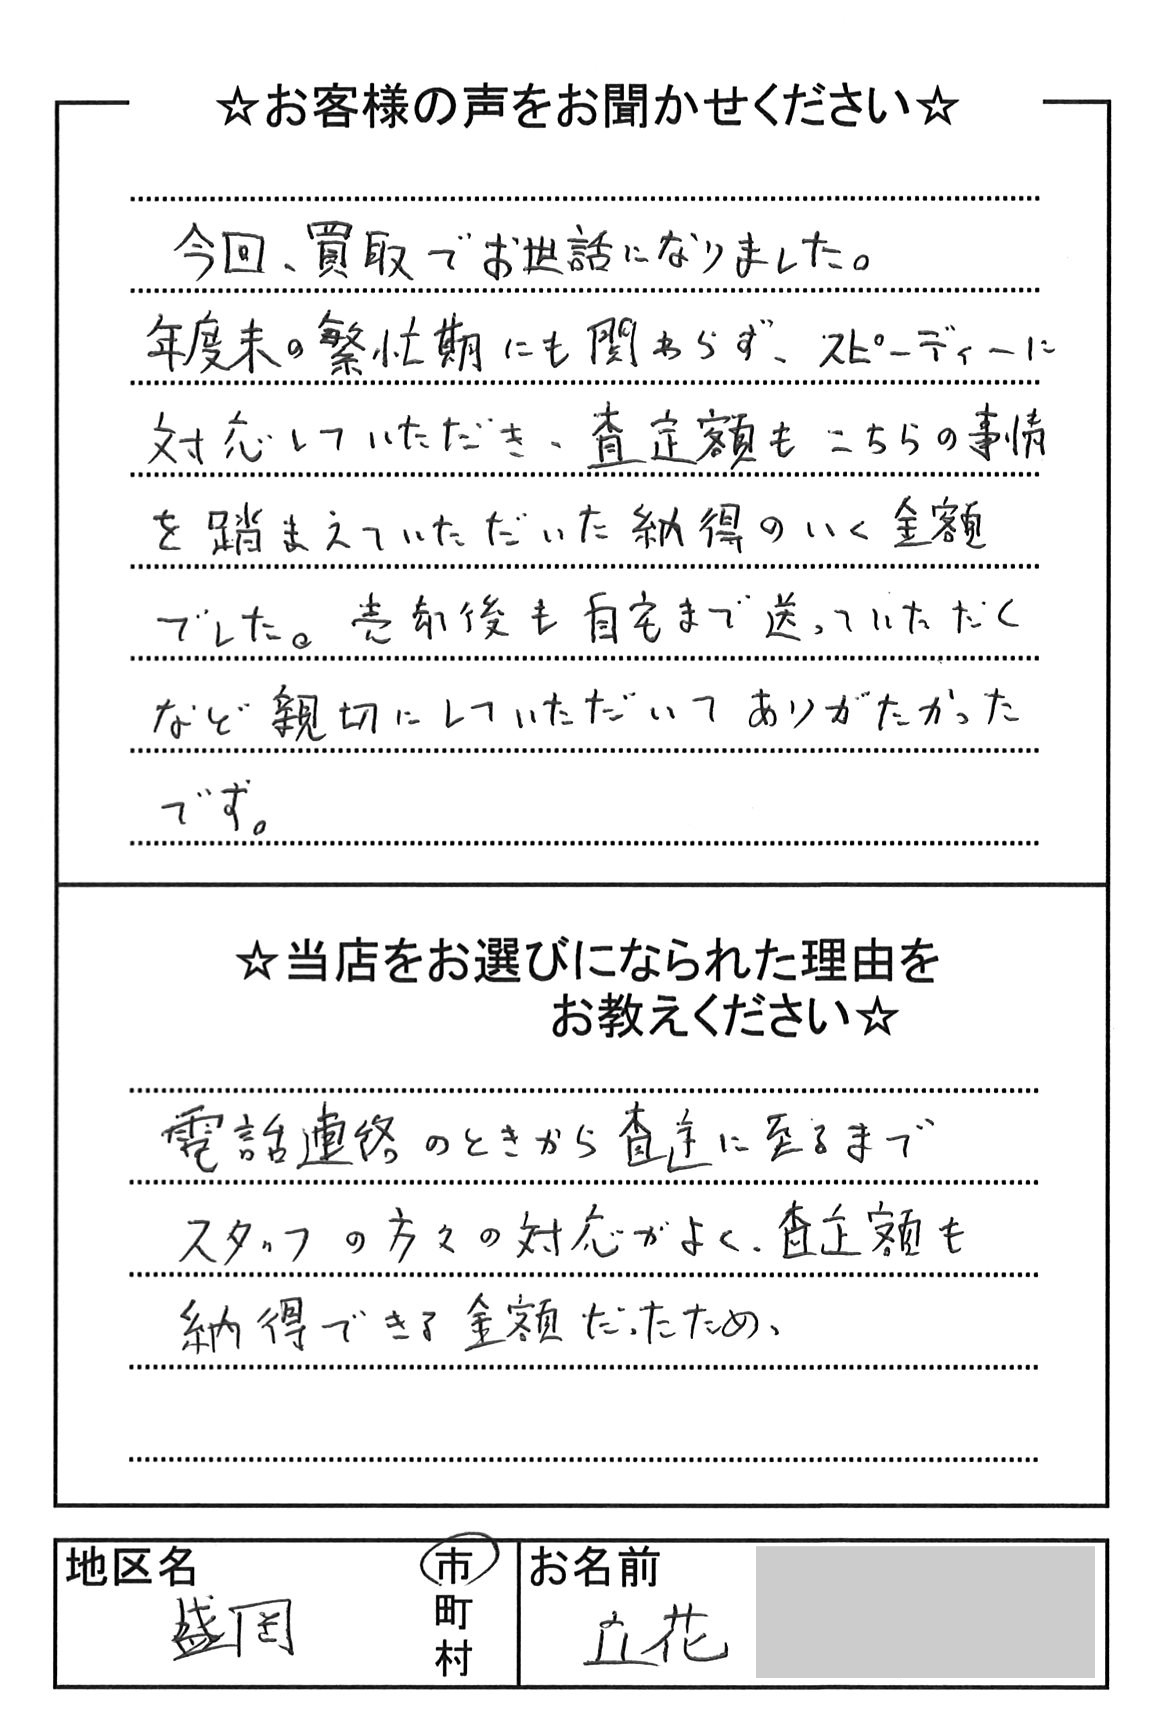 ☆お客様の声をお聞かせください☆
今回、買取でお世話になりました。
年度末の繁忙期にも関わらず、スピーディーに
対応していただき、査定額もこちらの事情
を踏まえていただいた納得のいく金額
でした。売却後も自宅まで送っていただく
など親切にしていただいてありがたかった
です。
☆当店をお選びになられた理由を
お教えください☆
電話連絡のときから査定に至るまで
スタッフの方々の対応がよく、査定額も
納得できる金額だったため、
地区名
盛岡
市
町
村
お名前
立花